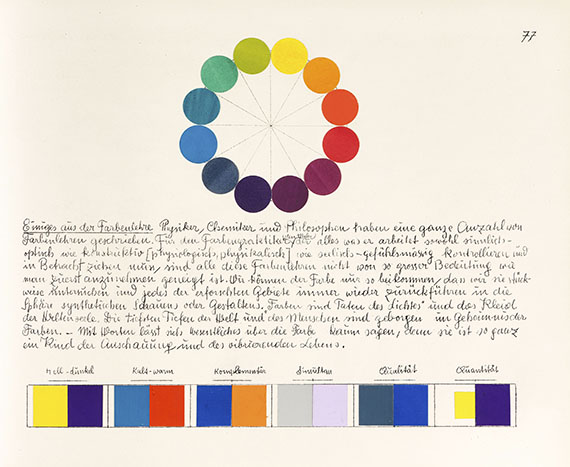 77
Einiges aus der Farbenlehre Physiker, Chemiker und Philosophen haben eine ganze Anzahl von
Farbenlehren geschrieben. Für den Farbengestalter, der alles was er arbeitet sowohl sinnlich-
optisch wie konstruktiv [physiologisch, physikalisch] wie seelisch-gefühlsmässig kontrollieren und
in Betracht ziehen muss, sind alle diese Farbenlehren nicht von so grosser Bedeutung wie
man zuerst anzunehmen geneigt ist. Wir können der Farbe nur so beikommen, dan wir sie stück-
weise untersuchen und jedes der erforschten Gebiete immer wieder zurückführen in die
Sphäre synthetischen Schauens oder Gestaltens. Farben sind Taten des Lichtes und das Kleid
der Weltenseele. Die tiefsten Tiefen der Welt und des Menschen sind geborgen im Geheimnis der
Farben. - Mit Worten lässt sich wesentliches über die Farbe kaum sagen, denn sie ist so ganz
ein Kind der Anschauung und des vibrierenden Lebens.
Hell-dunkel Kalt-warm Komplementär Simultan Qualität Quantität